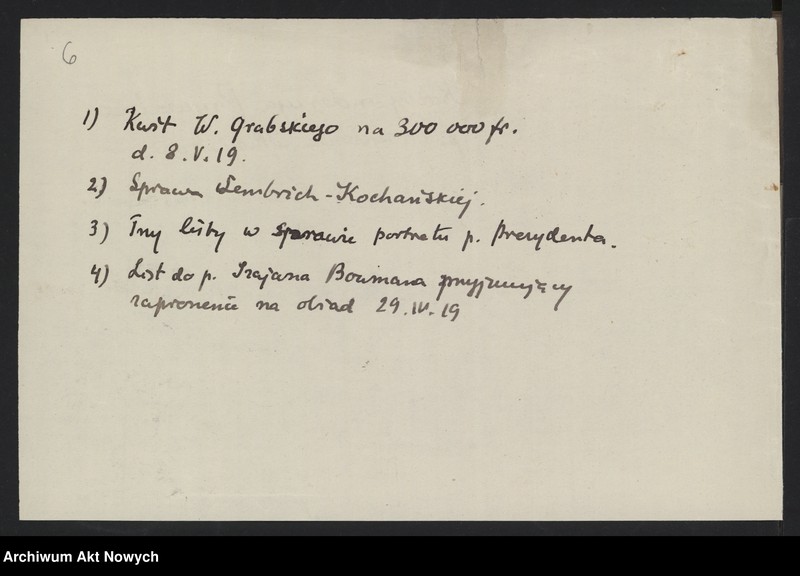 6
1) Kwit W. Grabskiego na 300 000 fr.
d. 8.V.19.
2) Sprawa Sembrich-Kochańskiej.
3) Trzy listy w sprawie portretu p. Prezydenta.
4) List do p. Izajasa Bowmana przyjmujący
zaproszenie na obiad 29.IV.19
Archiwum Akt Nowych